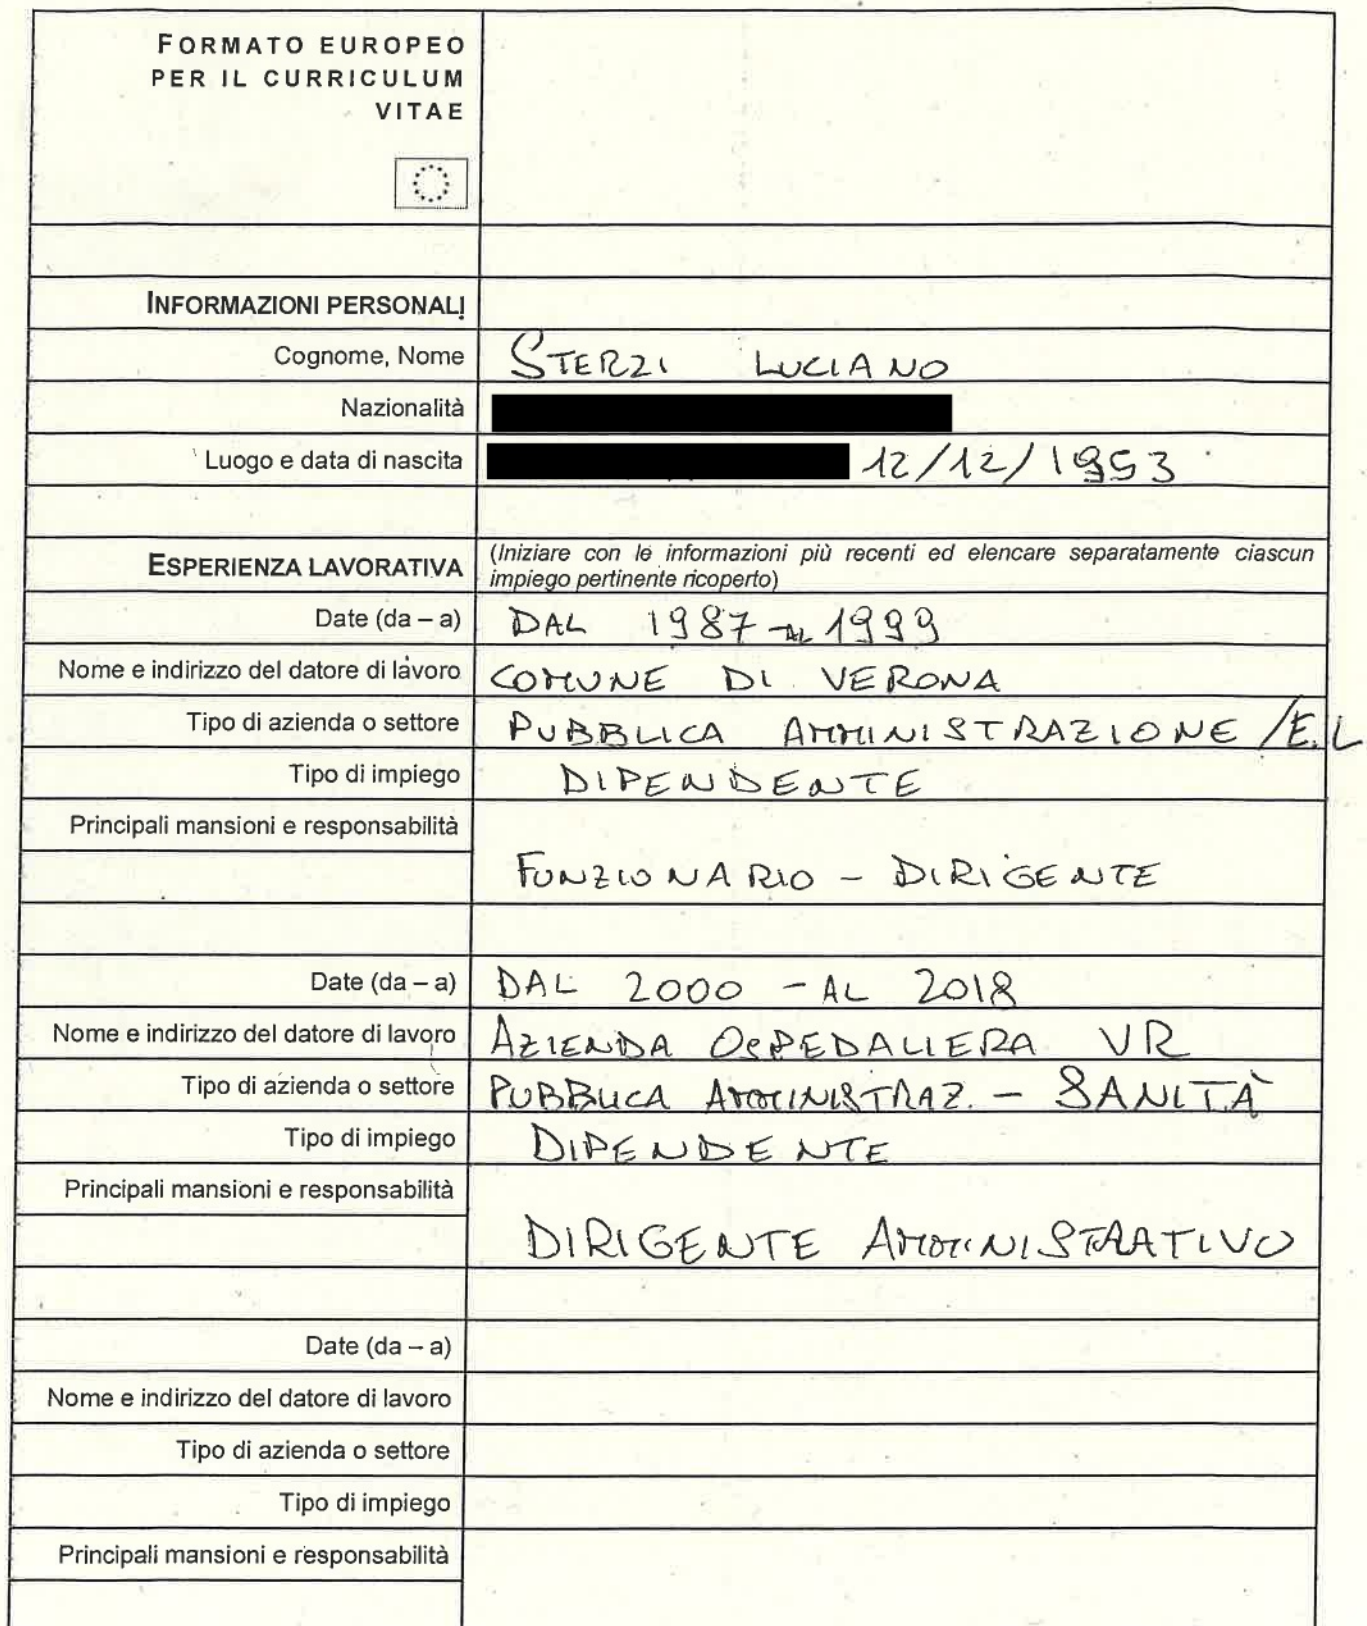 FORMATO EUROPEO
PER IL CURRICULUM
VITAE
INFORMAZIONI PERSONALI
Cognome, Nome STERZI LUCIANO
Nazionalità
Luogo e data di nascita 12/12/1953
ESPERIENZA LAVORATIVA (Iniziare con le informazioni più recenti ed elencare separatamente ciascun
impiego pertinente ricoperto)
Date (da – a) DAL 1987 - AL 1999
Nome e indirizzo del datore di lavoro COMUNE DI VERONA
Tipo di azienda o settore PUBBLICA AMMINISTRAZIONE /E.L
Tipo di impiego DIPENDENTE
Principali mansioni e responsabilità
FUNZIONARIO - DIRIGENTE
Date (da – a) DAL 2000 - AL 2018
Nome e indirizzo del datore di lavoro AZIENDA OSPEDALIERA VR
Tipo di azienda o settore PUBBLICA AMMINISTRAZ. - SANITÀ
Tipo di impiego DIPENDENTE
Principali mansioni e responsabilità
DIRIGENTE AMMINISTRATIVO
Date (da – a)
Nome e indirizzo del datore di lavoro
Tipo di azienda o settore
Tipo di impiego
Principali mansioni e responsabilità